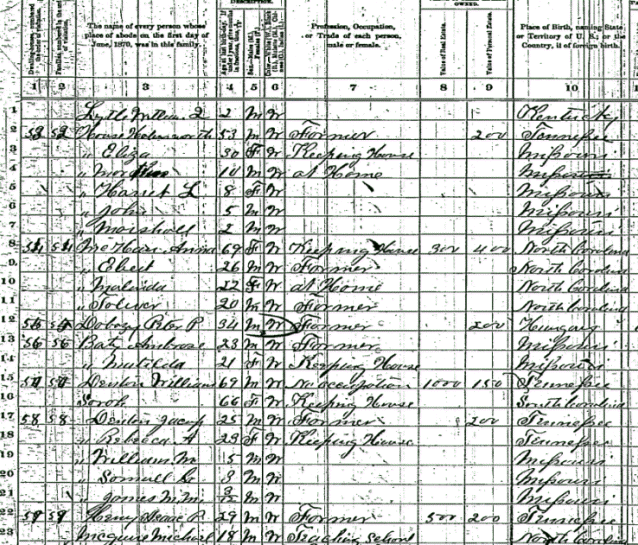 DESCRIPTION.
The name of every person whose place of abode on the first day of June, 1870, was in this family.
Profession, Occupation, or Trade of each person, male or female.
Value of Real Estate.
Value of Personal Estate.
Place of Birth, naming State or Territory of U. S.; or the Country, if of foreign birth.
1 2 3 4 5 6 7 8 9 10
1 Lytle William 2 M W Kentucky
2 52 52 House 53 M W Farmer 200 Tennessee
3 " Eliza 30 F W Keeping House Missouri
4 " 10 M W at Home Missouri
5 " Hariet L 8 F W Missouri
6 " John 5 M W Missouri
7 " Marshall 2 M W Missouri
8 54 54 Anna 69 F W Keeping House 300 400 North Carolina
9 " Ebert 26 M W Farmer North Carolina
10 " Malinda 22 F W at Home North Carolina
11 " Toliver 20 M W Farmer North Carolina
12 55 P 34 M W Farmer 200 Hungary
13 56 56 Ambrose 23 M W Farmer Missouri
14 " Matilda 21 F W Keeping House Missouri
15 57 57 Denton William 69 M W No occupation 1000 150 Tennessee
16 Sarah 66 F W Keeping House South Carolina
17 58 58 Denton Jacup 25 M W Farmer 200 Tennessee
18 " Rebecca A 23 F W Keeping House Tennessee
19 " William M 5 M W Missouri
20 " Samuel 3 M W Missouri
21 " James M. M W Missouri
22 59 59 Henry Isaac P 29 M W Farmer 500 200 Tennessee
23 Mcguire Michael 18 M W Teaching School North Carolina